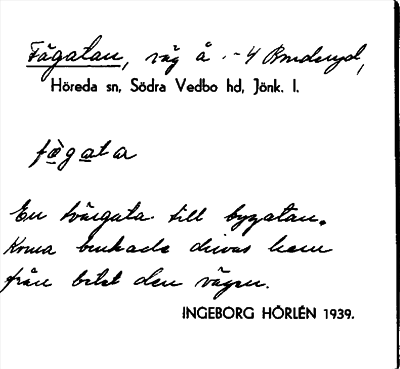 Fägatan, väg å .-4 Brudenyd,
Höreda sn, Södra Vedbo hd, Jönk. l.
fägata
En tvärgata till bygatan.
Korna brukade drivas hem
från betet den vägen.
INGEBORG HÖRLÉN 1939.